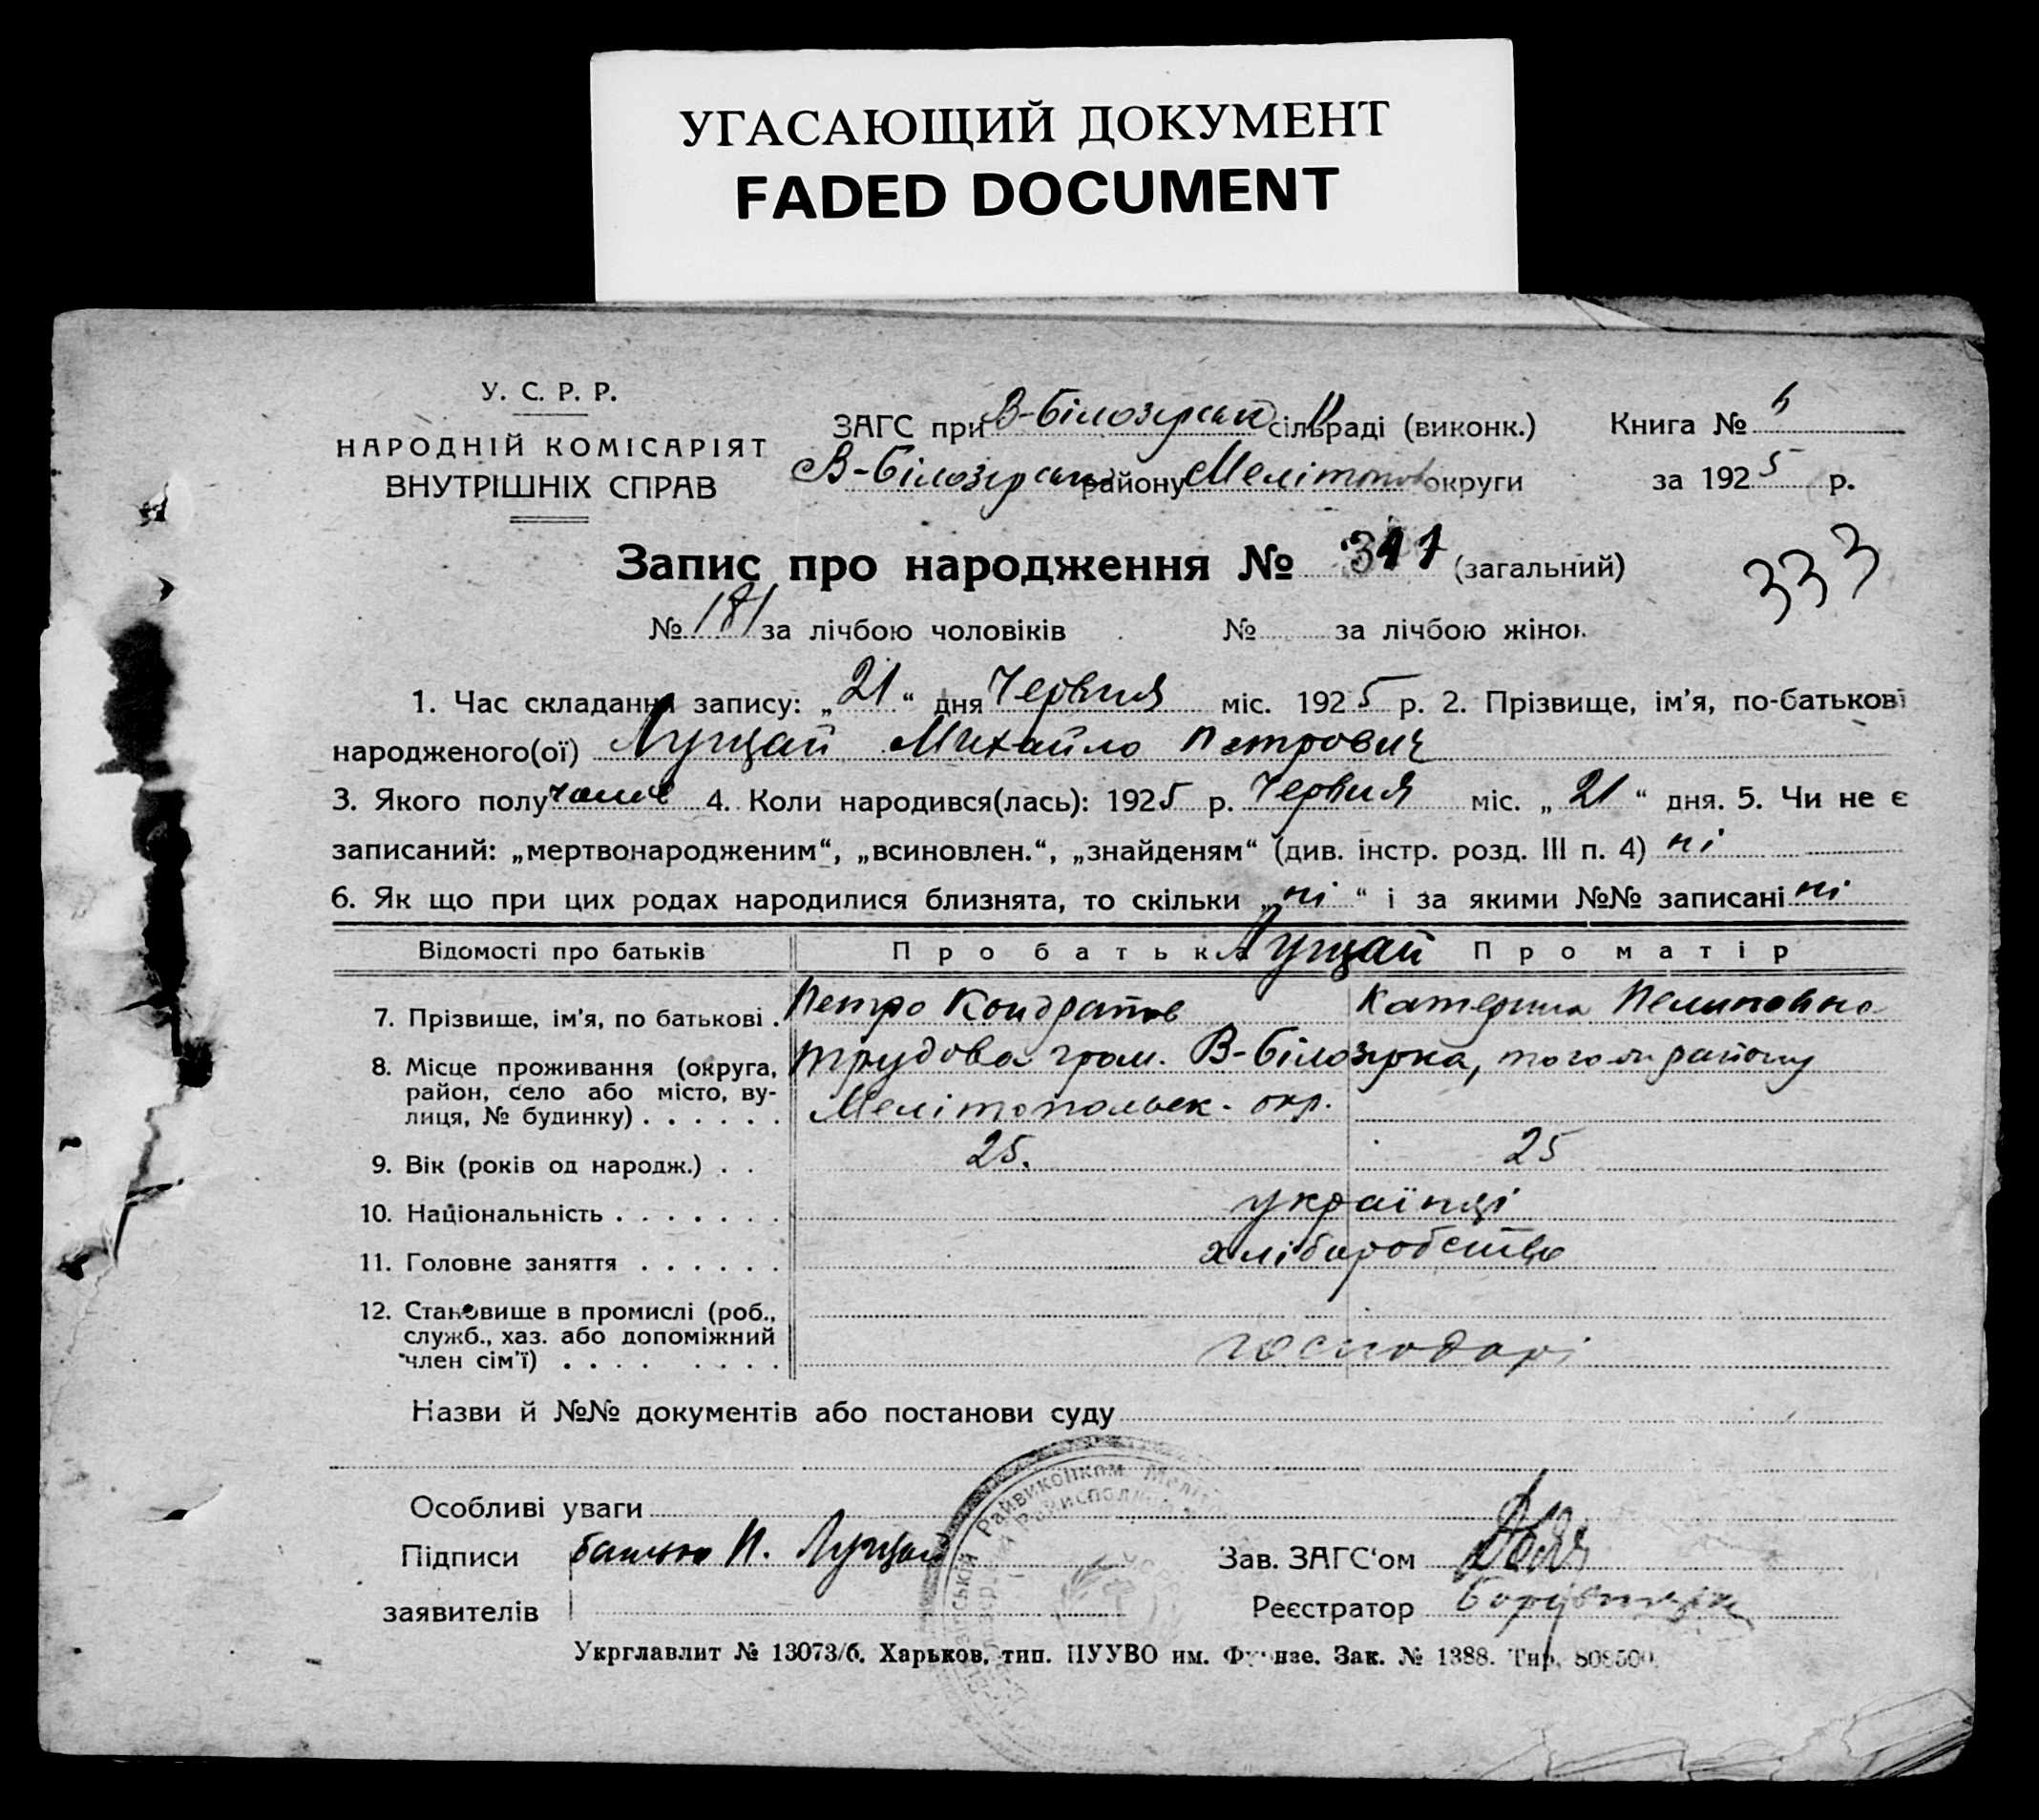 УГАСАЮЩИЙ ДОКУМЕНТ
FADED DOCUMENT
У. С. Р. Р.
НАРОДНІЙ КОМІСАРІЯТ
ВНУТРІШНІХ СПРАВ
ЗАГС при В-Білозірськ сільраді (виконк.)
В-Білозірськ району Мелітопов округи
Книга №
за 1925 р.
Запис про народження № (загальний)
333
№ 181 за лічбою чоловіків № за лічбою жінок
1. Час складання запису: „21“ дня Червня міс. 1925 р. 2. Прізвище, ім’я, по-батькові
народженого(ої) Лущай Михайло Петрович
3. Якого полу 4. Коли народився(лась): 1925 р. Червня міс. „21“ дня. 5. Чи не є
записаний: „мертвонародженим“, „всиновлен.“, „знайденям“ (див. інстр. розд. III п. 4) ні
6. Як що при цих родах народилися близнята, то скільки „ні“ і за якими №№ записані ні
Відомості про батьків Про батька Лущай Про матір
7. Прізвище, ім’я, по батькові . Петро Кондратов Катерина
8. Місце проживання (округа, район, село або місто, вулиця, № будинку) . . . . . . Трудова гром. В-Білозірка, того ж району
Мелітопольск. окр.
9. Вік (років од народж.) . . 25. 25
10. Національність . . . . . . . українці
11. Головне заняття . . . . . . хліборобство
12. Становище в промислі (роб., служб., хаз. або допоміжний член сім’ї) . . . . . . . . господарі
Назви й №№ документів або постанови суду
Особливі уваги
Підписи батько П. Лущай
заявителів
Зав. ЗАГС‘ом
Реєстратор
Райвиконком
Укрглавлит № 13073/б. Харьков, тип. ПУУВО им. Фрунзе. Зак. № 1388. Тир.